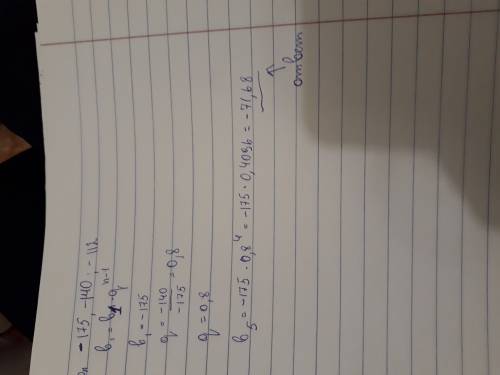 - 175, -140, -112
bₙ = b₁ · qⁿ⁻¹
b₁ = -175
q = -140 / -175 = 0,8
q = 0,8
b₅ = -175 · 0,8⁴ = -175 · 0,4096 = -71,68
↑
ответ